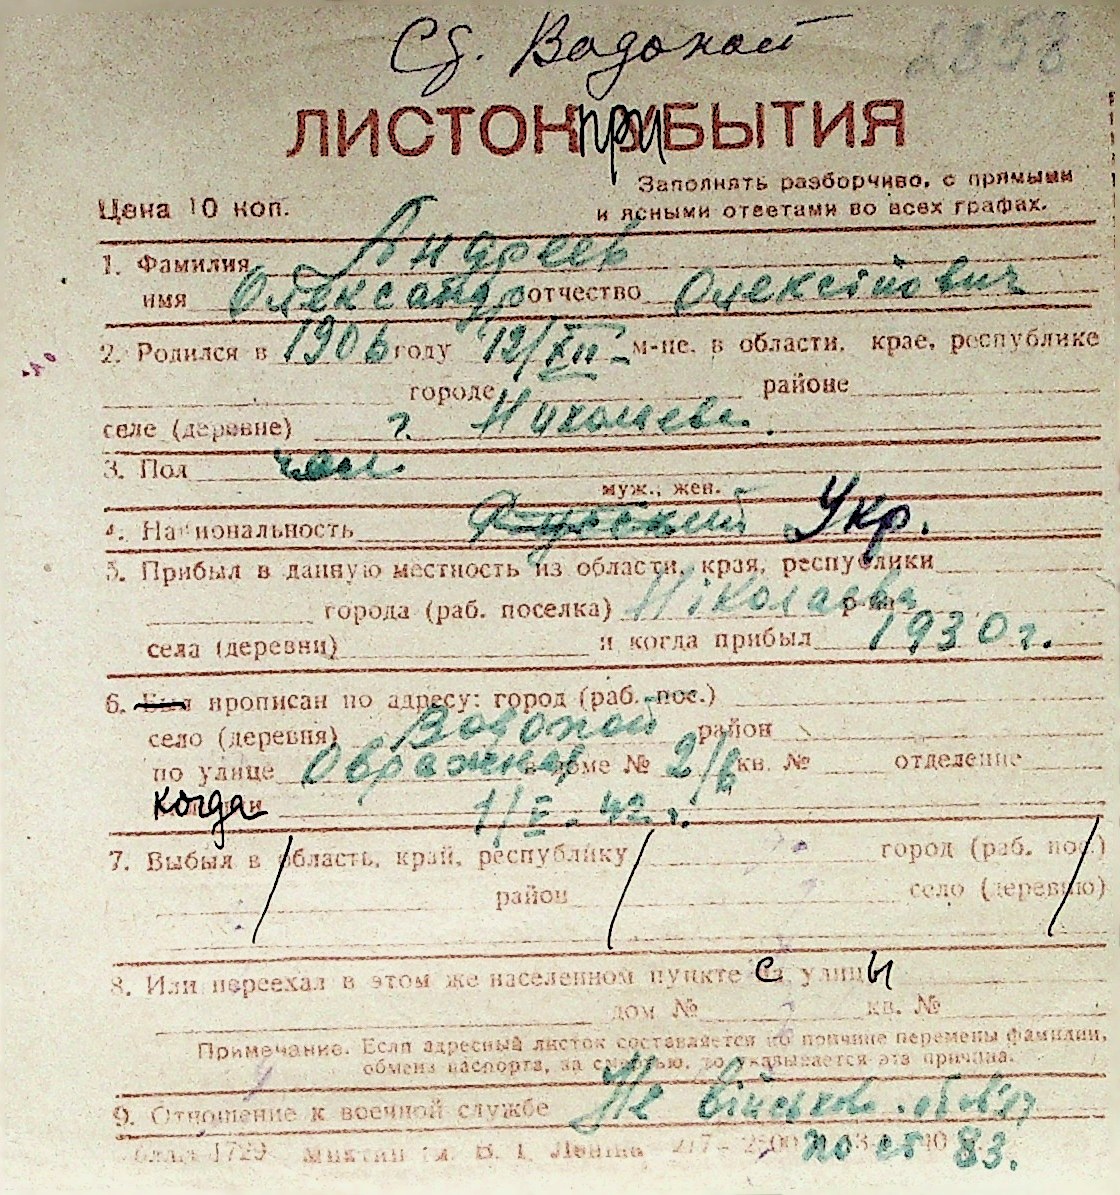 Сд. Водопой 2858
ЛИСТОК ПРИБЫТИЯ
Заполнять разборчиво, с прямыми
Цена 10 коп. и ясными ответами во всех графах.
1. Фамилия Андреев
имя Олександр отчество Олексійович
2. Родился в 1906 году 12/XII - м-це, в области, крае, республике
городе районе
селе (деревне) г. Николаев.
3. Пол чол
муж., жен.
4. Национальность Русский Укр.
5. Прибыл в данную местность из области, края, республики
города (раб. поселка) Ніколаєва р-на
села (деревни) и когда прибыл 1930 г.
6. Был прописан по адресу: город (раб. пос.)
село (деревня) Водопой район
по улице Овражная в доме № 2/в кв. № отделение
когда 1/V. 42 г.
7. Выбыл в область, край, республику город (раб. пос.)
район село (деревню)
8. Или переехал в этом же населенном пункте с улицы
дом № кв. №
Примечание. Если адресный листок составляется по причине перемены фамилии,
обмена паспорта, за смертью, то указывается эта причина.
9. Отношение к военной службе Не військово.обов'яз
1729 В. І. Леніна по ст 83.